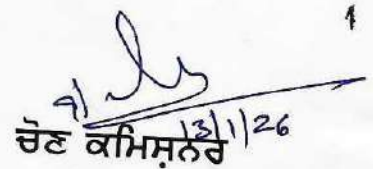 1
13/1/26
ਚੋਣ ਕਮਿਸ਼ਨਰ